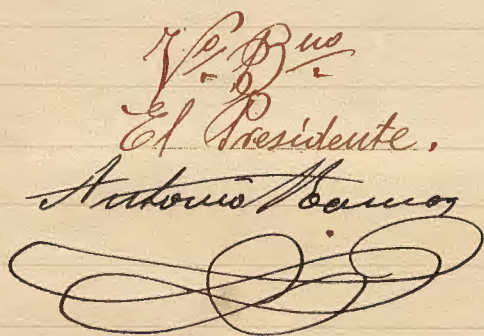 Vo. Bno.
El Presidente.
Antonio Ramos